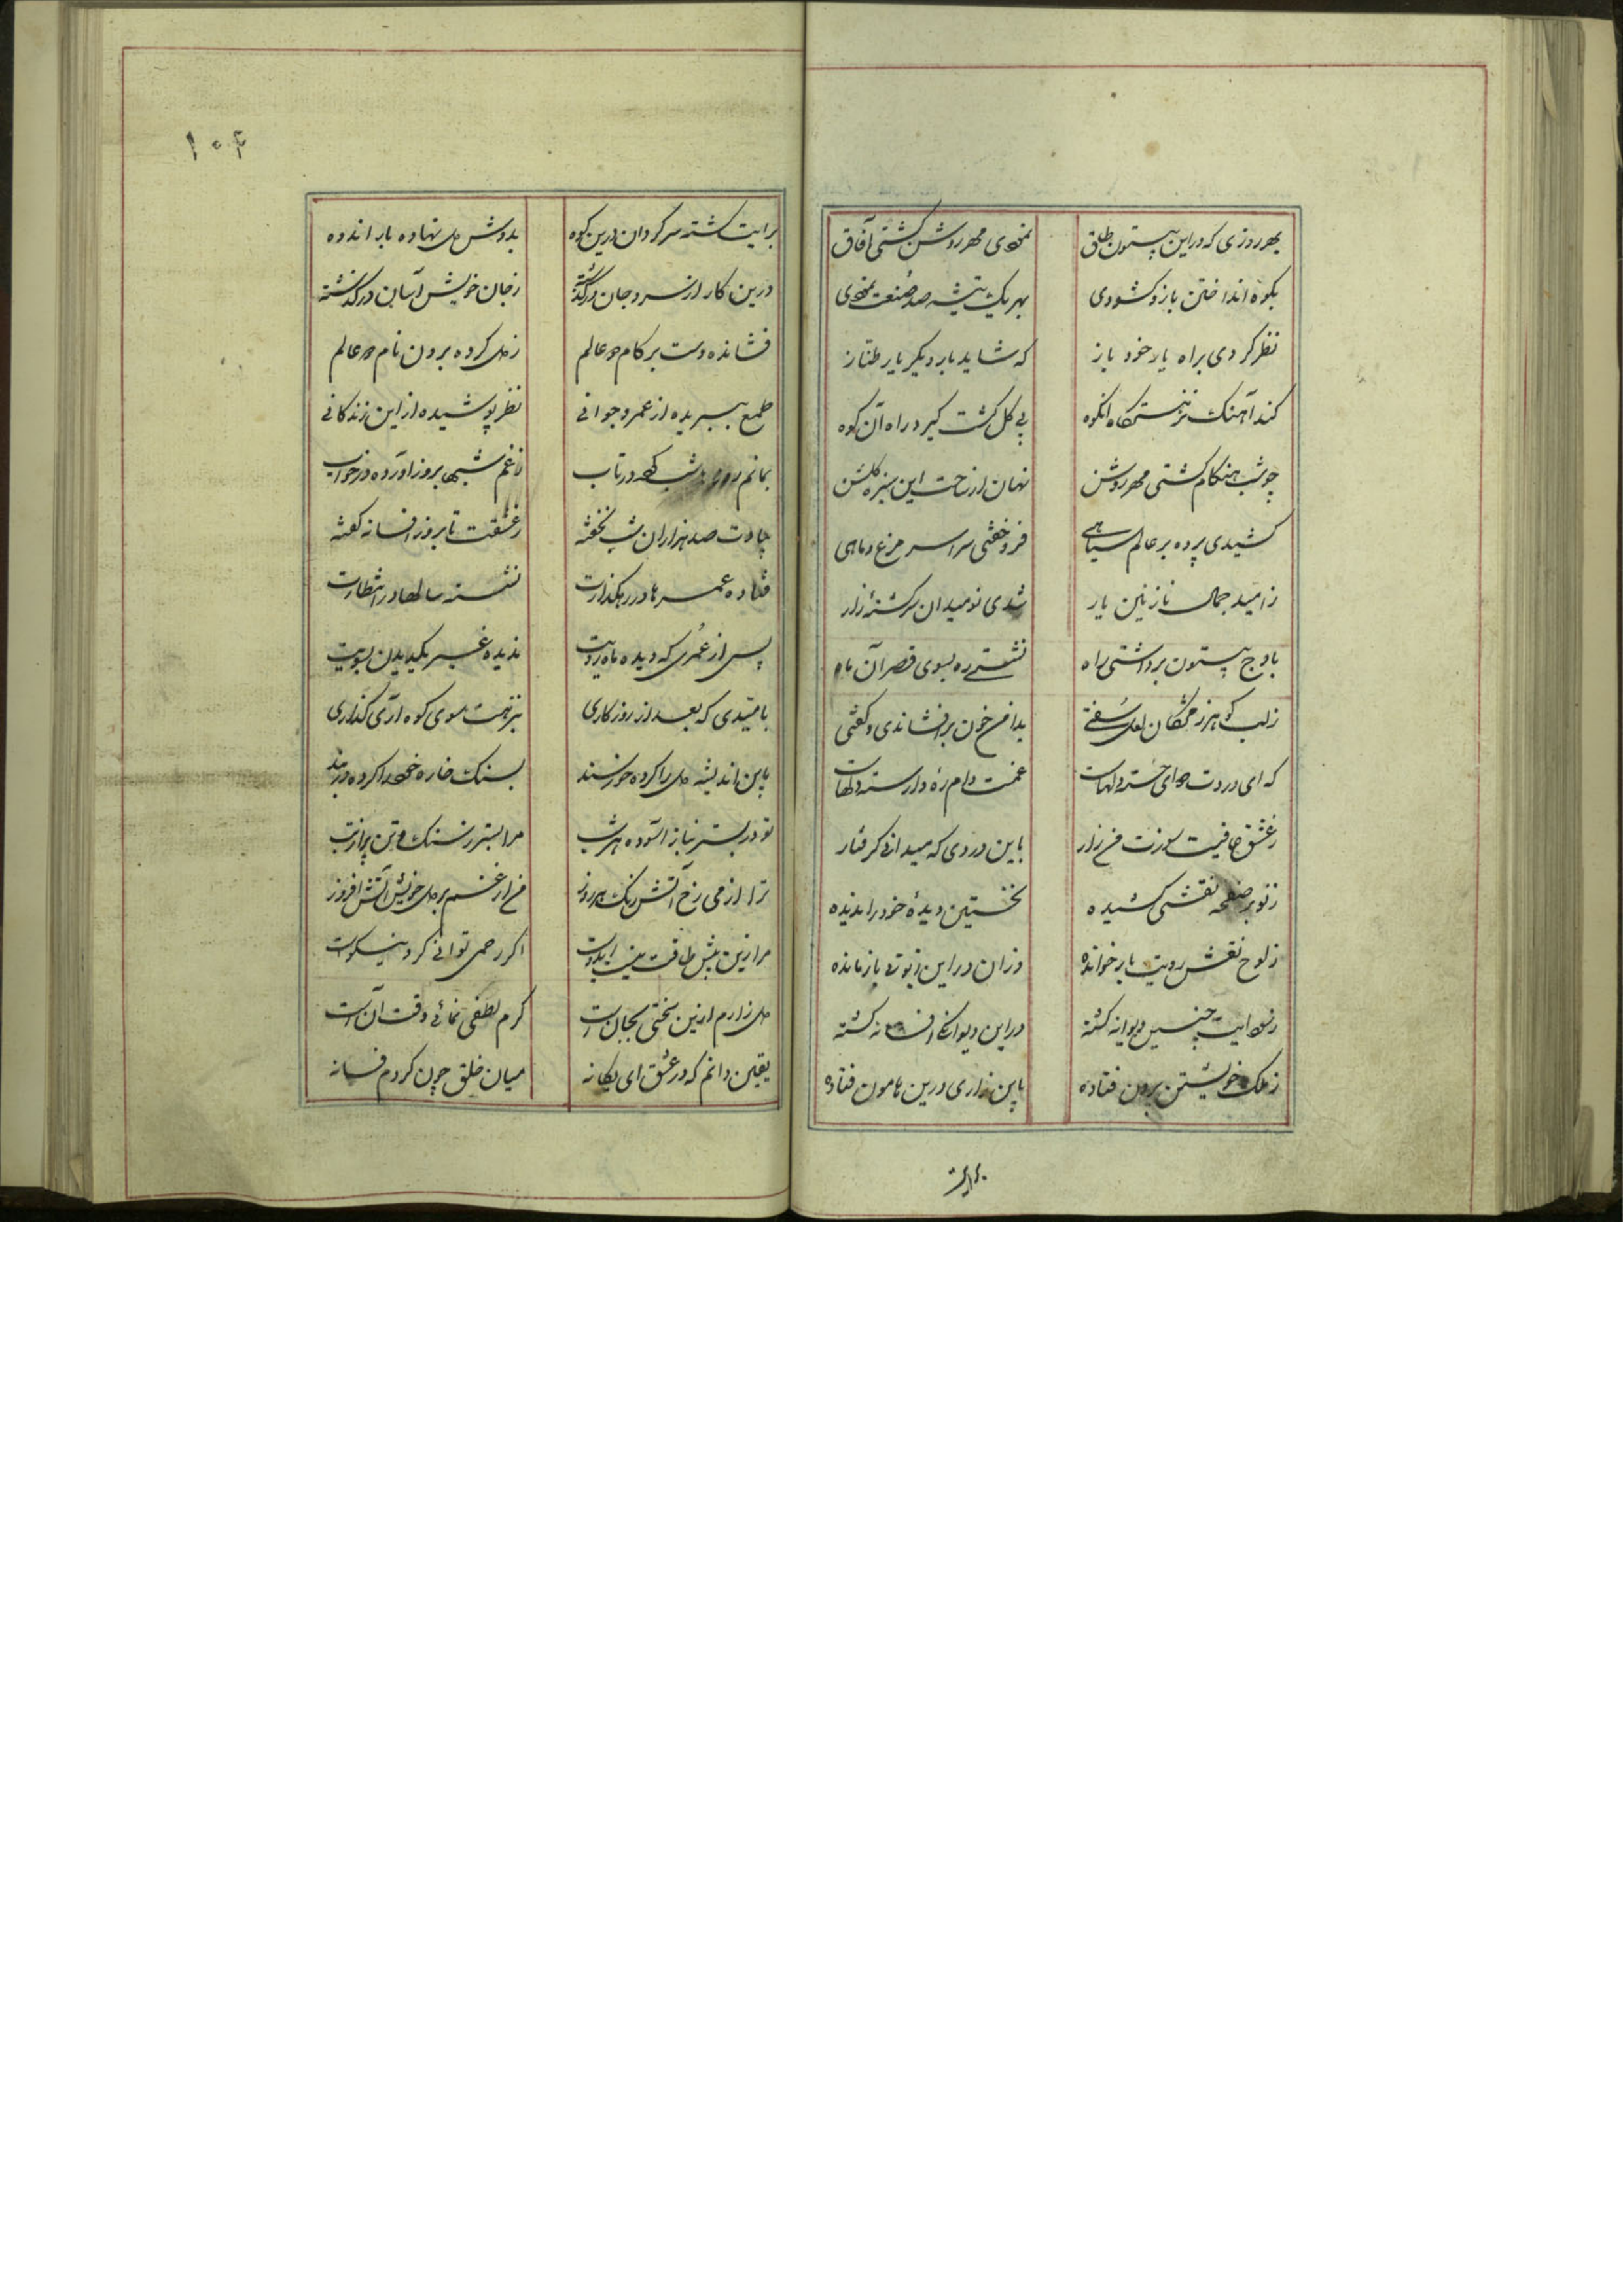 بهر روزی که در این بیستون طاق نمودی مهر روشن گشتی آفاق
بکوه انداختن بازو کشودی بهر یک تیشه صد صنعت نمودی
نظر کردی براه یار خود باز که شاید بار دیگر یار طناز
کند آهنک نزهتکاه انکوه پی کل کشت کیرد راه آن کوه
چو شب هنکام کشتی مهر روشن نهان از ساحت این سبزه کلشن
کشیدی پرده بر عالم سیاهی فرو خفتی سراسر مرغ و ماهی
ز امید جمال نازنین یار شدی نومید ان سرکشته زار
باوج بیستون برداشتی راه نشستی ره بسوی قصر آن ماه
ز لب کوهر ز مژکان لعل سفتی بدامن خون بر افشاندی و کفتی
که ای دردت دوای خسته دلهات غمت دام ره وارسته دلهات
ز عشق عافیت سوزت من زار باین دردی که میدانی کرفتار
ز تو بر صفحه نقشی کشیده نخستین دیدهٔ خود را ندیده
ز لوح نقش رویت باز خوانده وزان در این باز مانده
ز سودایت چنین دیوانه کشته در این دیوانکی افسانه کشته
ز ملک خویشتن برون فتاده باین زاری درین هامون فتاده
برایت
۱۰۴
برایت کشته سرکردان درین کوه بدوش دل نهاده بار اندوه
درین کار از سر و جان درکذشته ز جان خویش آسان درکذشته
فشانده دست بر کام دو عالم ز دل کرده برون نام دو عالم
طمع ببریده از عمر و جوانی نظر پوشیده از این زندکانی
بماتم روز شب کرده در تاب ز غم شبها بروز آورده در خواب
بیادت صد هزاران شب نخفته ز عشقت تا بروز افسانه کفته
فتاده عمرها در رهکذارت نشسته سالها در انتظارت
پس از عمری که دیده ماه رویت ندیده غیر یکدیدن بسویت
بامیدی که بعد از روزکاری بنزهت سوی کوه آری کذاری
باین اندیشه دل را کرده خورسند بسنک خاره خود را کرده در بند
تو در بستر بناز آسوده هر شب مرا بستر ز سنک و تن پر از تب
ترا از می رخ آتش رنک هر روز من از غم بر دل خویش آتش افروز
مرا زین بیش طاقت نیست ایدوست اکر رحمی توانی کرد نیکوست
دل زارم ازین سختی بجان است کرم لطفی نمائی وقت آن است
یقین دانم که در عشق ای یکانه میان خلق چون کردم فسانه